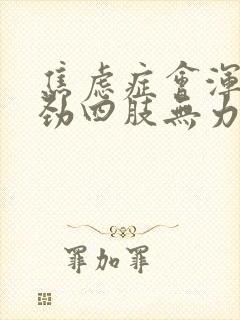 焦虑症會渾
劲四肢無力
罪加罪